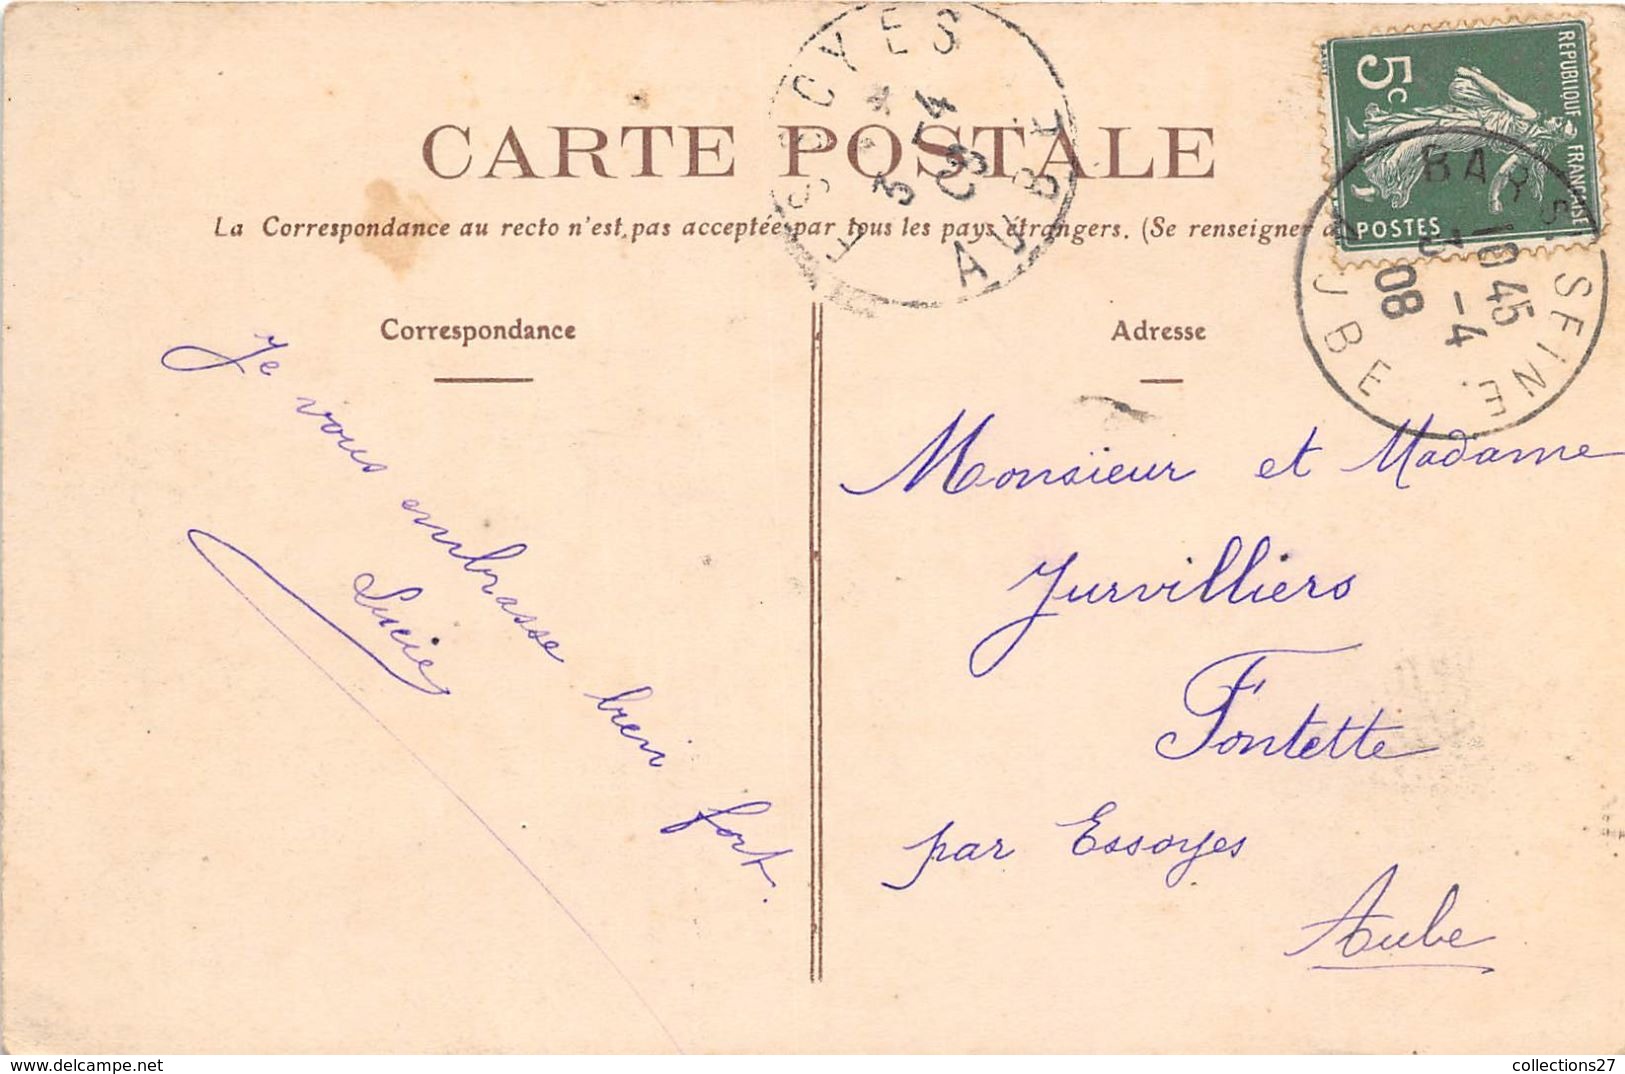 CARTE POSTALE
La Correspondance au recto n'est pas acceptée par tous les pays étrangers. (Se renseigner
Correspondance
Je vous embrasse bien fort.
Lucie
Adresse
Monsieur et Madame
Jurvilliers
Fontette
par Essoyes
Aube
REPUBLIQUE FRANÇAISE
5c
POSTES
BAR S SEINE
10 45
3 -4
08
AUBE
ESSOYES
3 4
08
AUBE
delcampe.net
collections27